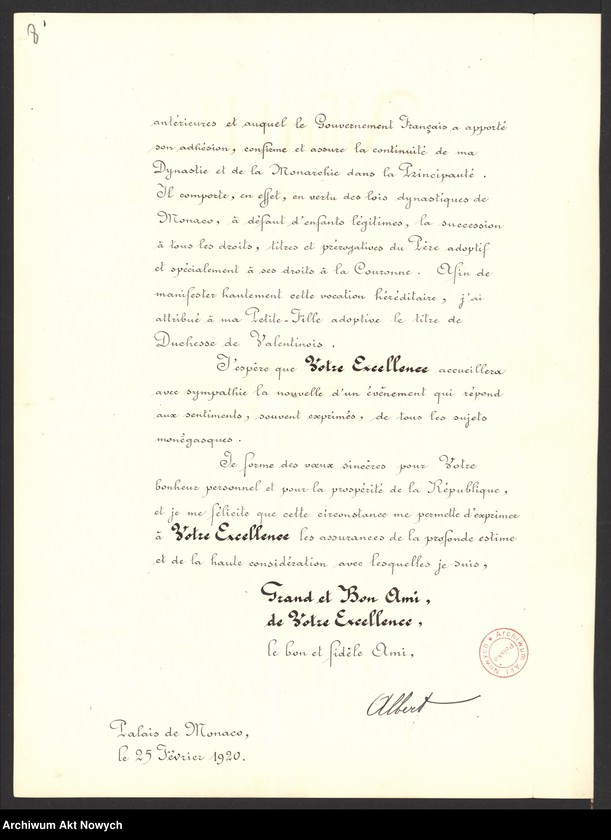 8
antérieures et auquel le Gouvernement Français a apporté
son adhésion, confirme et assure la continuité de ma
Dynastie et de la Monarchie dans la Principauté.
Il comporte, en effet, en vertu des lois dynastiques de
Monaco, à défaut d'enfants légitimes, la succession
à tous les droits, titres et prérogatives du Père adoptif
et spécialement à ses droits à la Couronne. Afin de
manifester hautement cette vocation héréditaire, j'ai
attribué à ma Petite-Fille adoptive le titre de
Duchesse de Valentinois.
J'espère que Votre Excellence accueillera
avec sympathie la nouvelle d'un événement qui répond
aux sentiments, souvent exprimés, de tous les sujets
monégasques.
Je forme des vœux sincères pour Votre
bonheur personnel et pour la prospérité de la République,
et je me félicite que cette circonstance me permette d'exprimer
à Votre Excellence les assurances de la profonde estime
et de la haute considération avec lesquelles je suis,
Grand et Bon Ami,
de Votre Excellence,
le bon et fidèle Ami,
Archiwum Akt Nowych
Polska
Albert
Palais de Monaco,
le 25 Février 1920.
Archiwum Akt Nowych